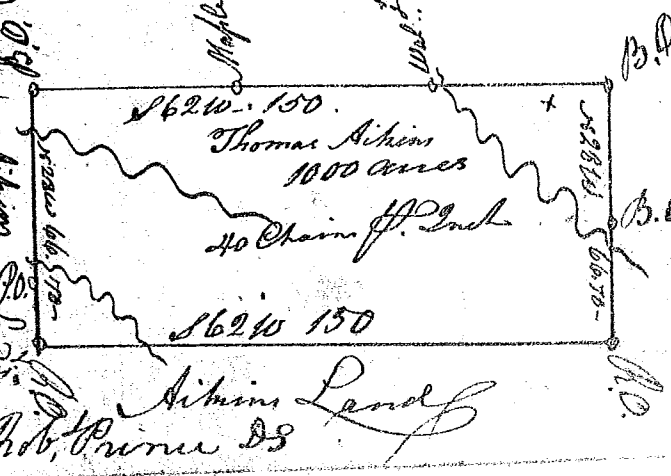 Maple
Wal
S62W-. 150.
Thomas Aikins
1000 acres
40 Chains Pr. Inch
S62W 150
N28W 66.70-
N28W 66.70-
P.O.
R.O.
R.O.
Aikins Land
Robt. Prince DS